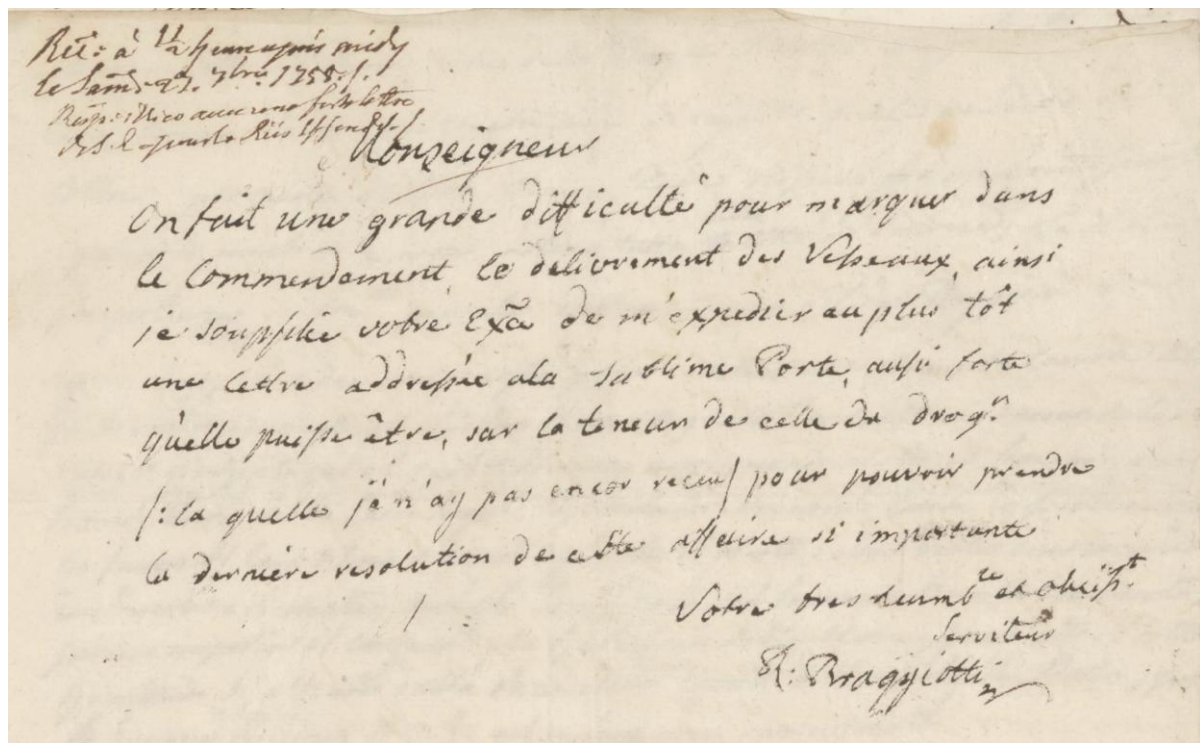 Rec: à 1½ heure après midy
le Sam: 7bre 1758.
Resp: avec une forte lettre
pour le Reis Effendy
Monseigneur
On fait une grande difficulté pour marquer dans
le Commendement, le delivrement des Vesseaux, ainsi
je soupplie votre Exa de m'expedier au plus tôt
une lettre addressée ala Sublime Porte, aussi forte
qu'elle puisse être, sur la teneur de celle du drogn
/: la quelle jé n'ay pas encor receu/ pour pouvoir prendre
la derniere resolution de cette affaire si importante
/
Votre tres heumble et obeisst
Serviteur
Braggiotti